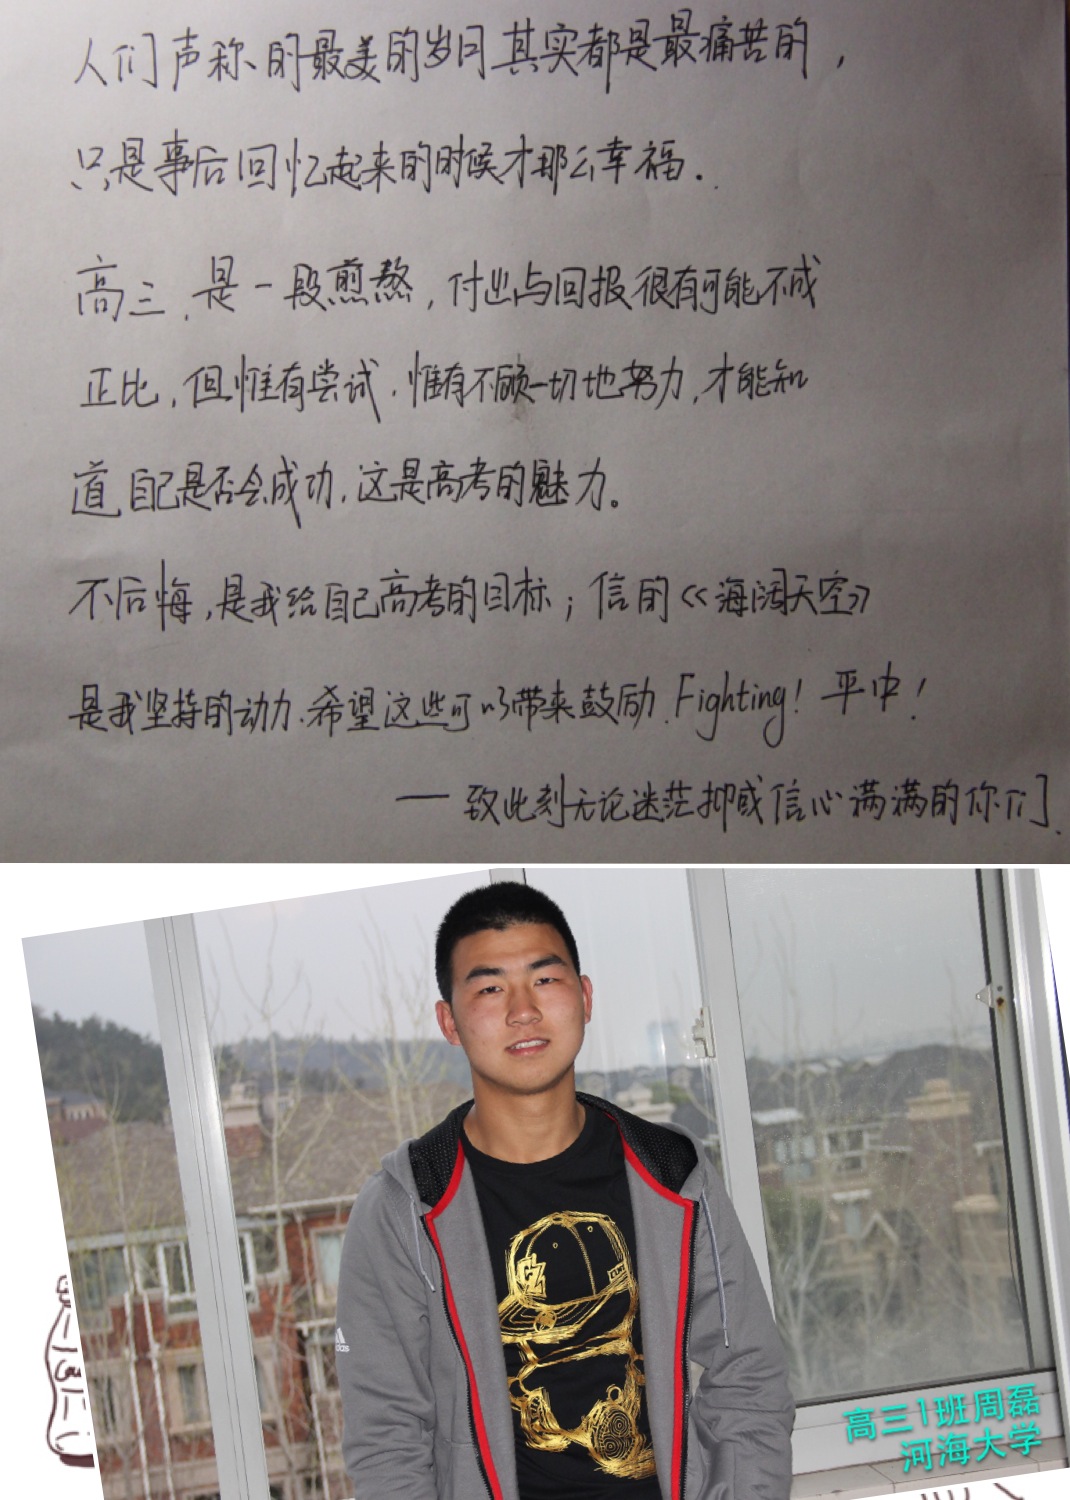 人们声称的最美的岁月其实都是最痛苦的，
只是事后回忆起来的时候才那么幸福.
高三,是一段煎熬,付出与回报很有可能不成
正比,但惟有尝试,惟有不顾一切地努力,才能知
道自己是否会成功,这是高考的魅力。
不后悔,是我给自己高考的目标;信的《海阔天空》
是我坚持的动力,希望这些可以带来鼓励.Fighting！平中！
——致此刻无论迷茫抑或信心满满的你们.
GZ
高三1班周磊
河海大学